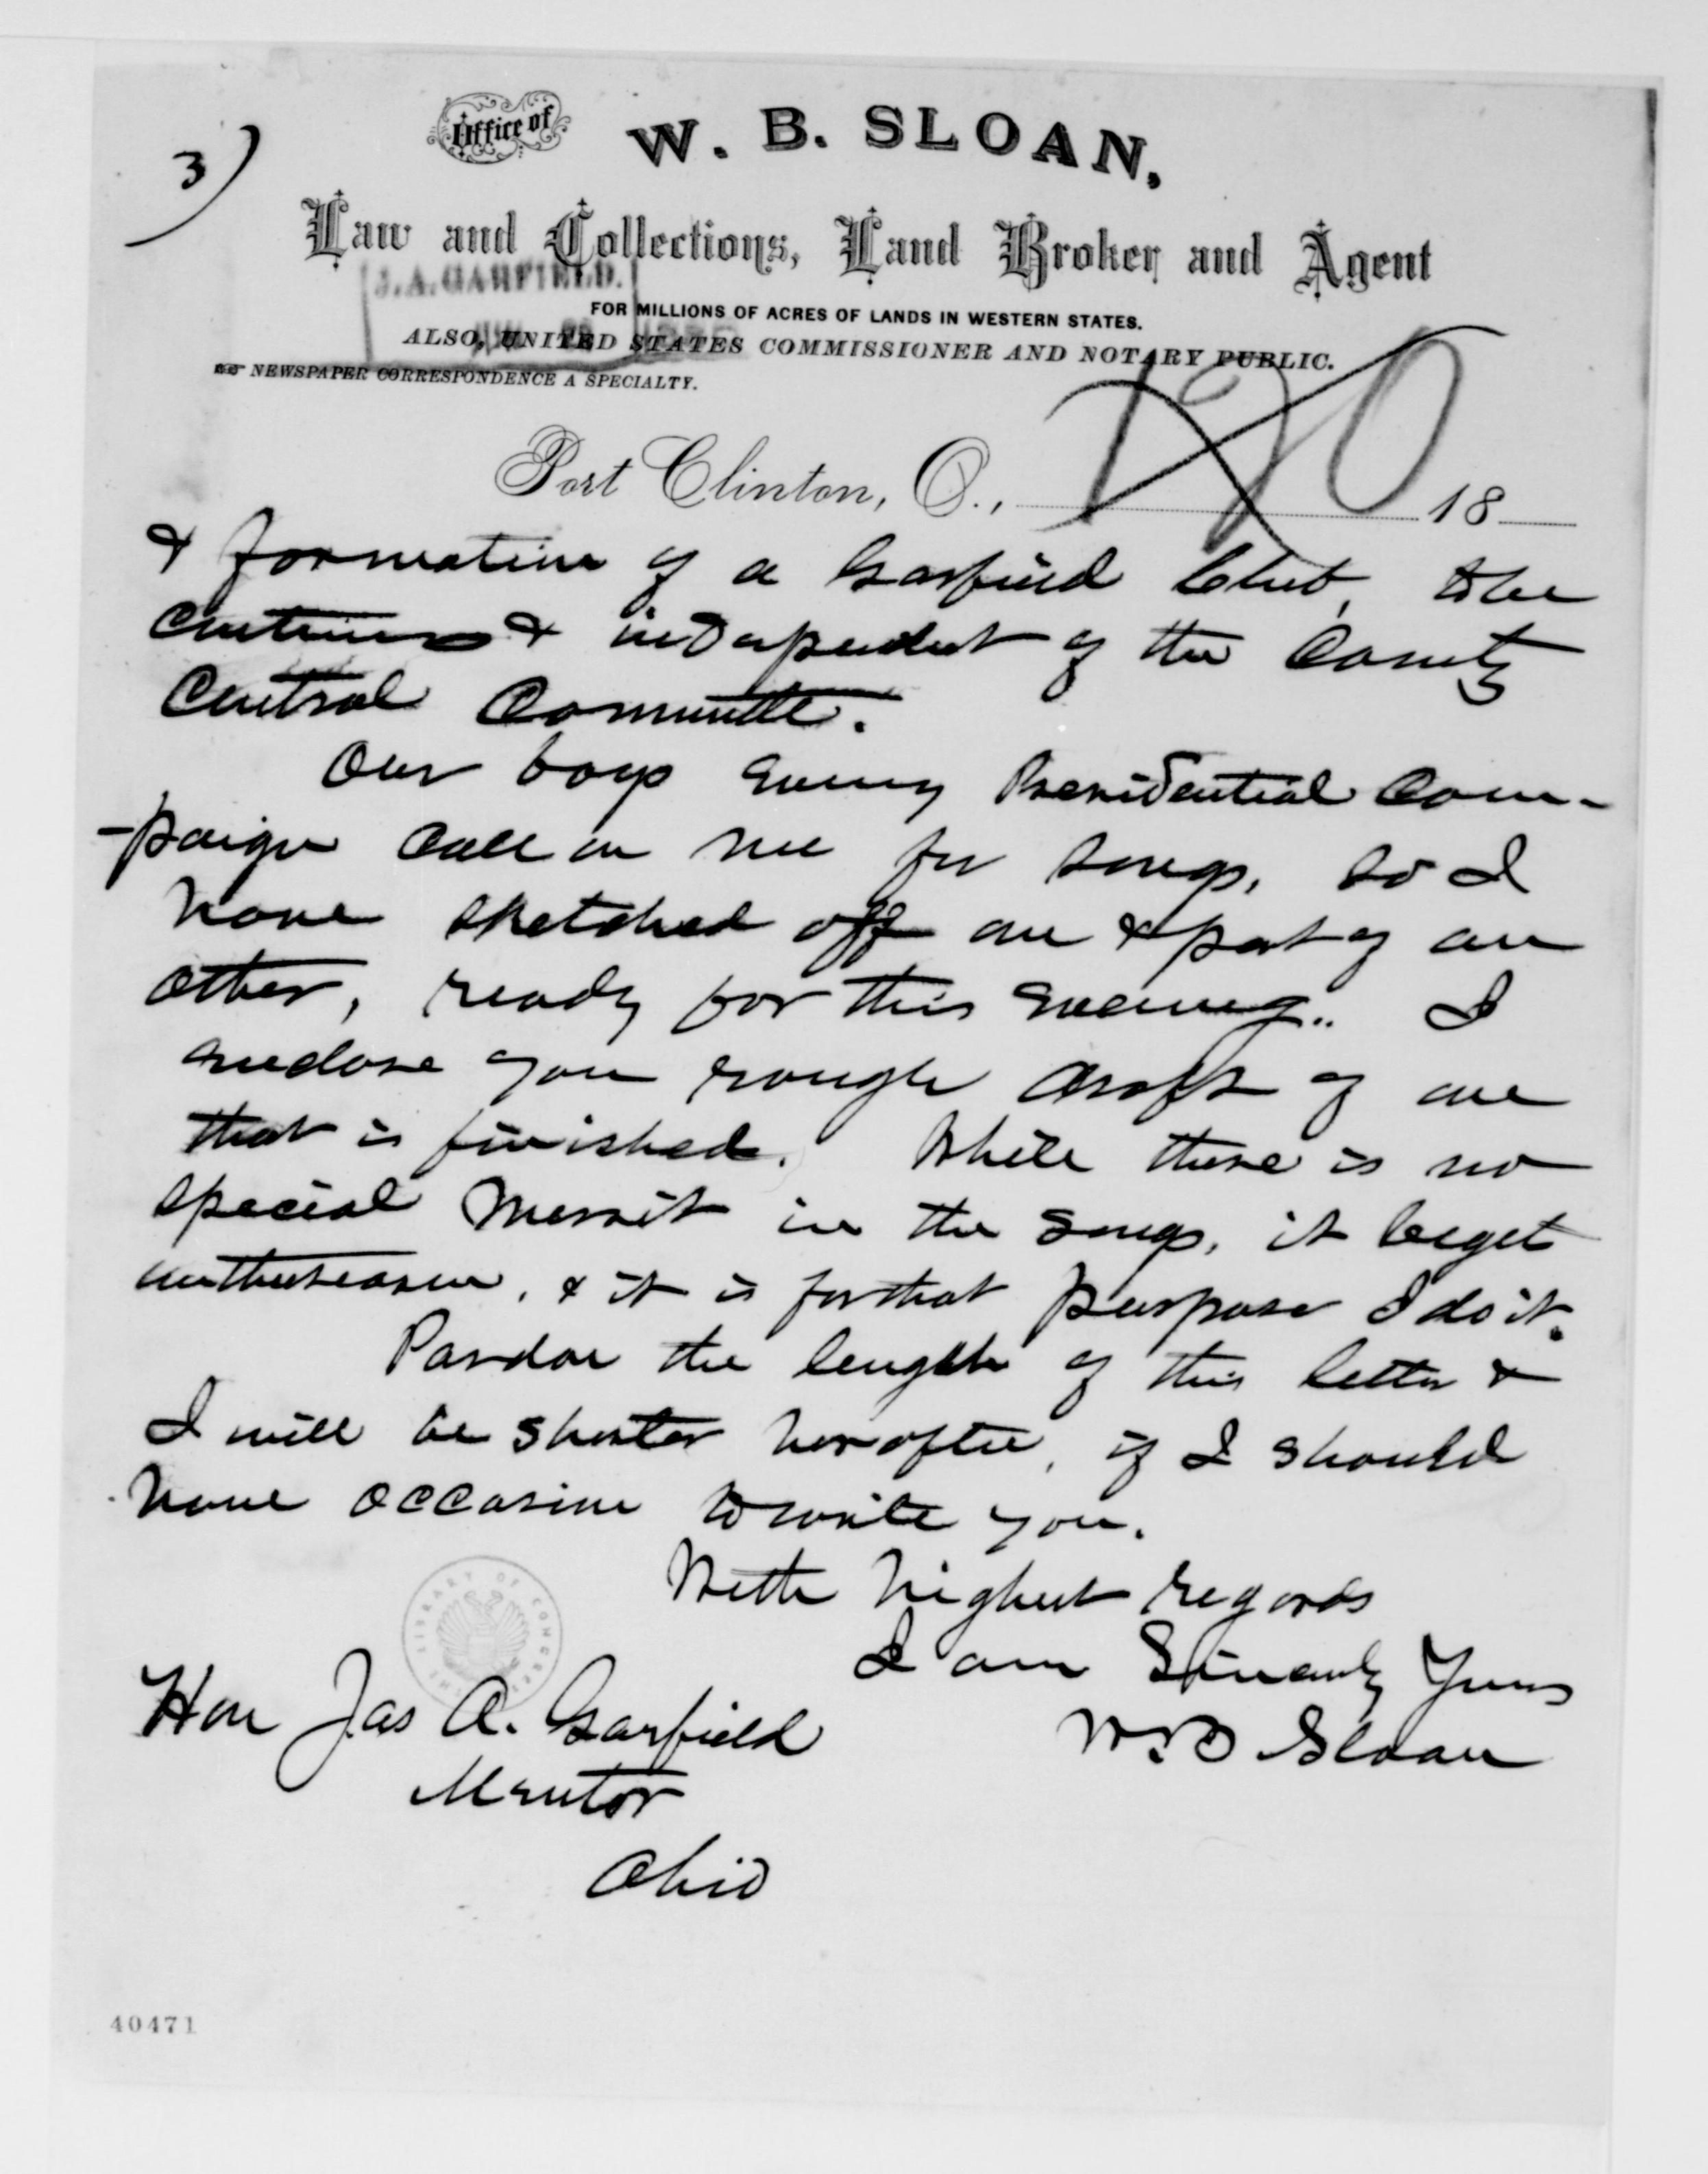 3)
Office of W. B. SLOAN,
Law and Collections, Land Broker and Agent
J. A. GARFIELD.
FOR MILLIONS OF ACRES OF LANDS IN WESTERN STATES.
ALSO, UNITED STATES COMMISSIONER AND NOTARY PUBLIC.
NEWSPAPER CORRESPONDENCE A SPECIALTY.
Port Clinton, O., 18
& formation of a Garfield Club, to be
& independent of the County
Central Committee.
Our boys every Presidential Cam-
-paign call on me for songs, so I
have sketched off one & part of an
other, ready for this evening.. I
enclose you rough draft of one
that is finished. While there is no
special merrit in the songs, it beget
enthusiasm, & it is for that purpose I do it.
Pardon the length of this letter &
I will be shorter herafter, if I should
have occasion to write you.
With highest regards
I am Sincerely Yours
W.B Sloan
Hon Jas A. Garfield
Mentor
Ohio
THE LIBRARY OF CONGRESS
40471